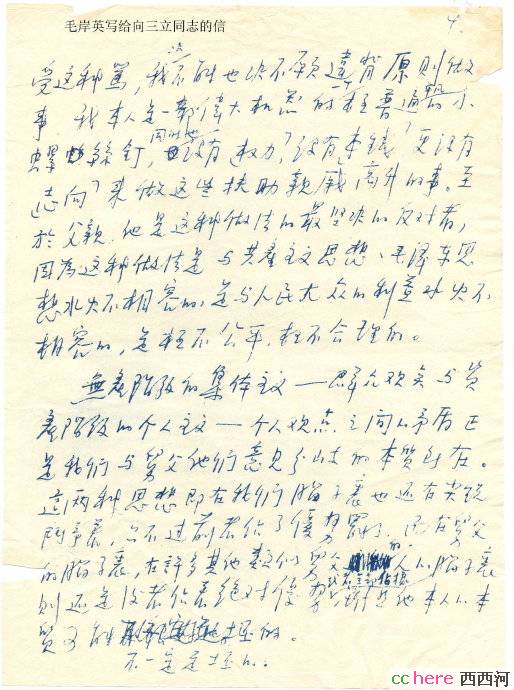 毛岸英写给向三立同志的信
4.
受这种骂,我不能也决不愿違背原则做
事,我本人是一部偉大机器的一个极普通的小
螺絲釘,同时也没有"权力",没有"本钱",更没有
"志向"来做这些扶助親戚高升的事。至
於父親,他是这种做法的最坚决的反对者,
因為这种做法是与共產主义思想、毛泽东思
想水火不相容的,是与人民大众的利益水火不
相容的,是极不公平,极不合理的。
無產階級的集体主义——群众观点与資
產階級的个人主义——个人观点之间的矛盾正
是我们与舅父他们意见分歧的本质所在。
這两种思想即在我们脑子裏也还有尖锐
鬥争着,只不过前者佔了優势罢了。而在舅父
的脑子裏,在許多其他类似舅父的人的脑子裏
則还是後者佔着絕对優势,或者全部佔據,雖然他本人的本
質可能
不一定是坏的。
cchere 西西河